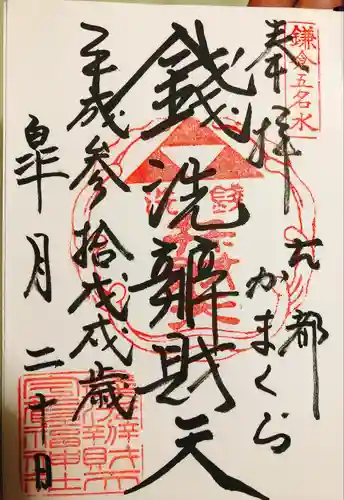 鎌倉五名水
奉拝
古都
かまくら
銭洗辨財天
平成参拾戊戌歳
皐月二十日